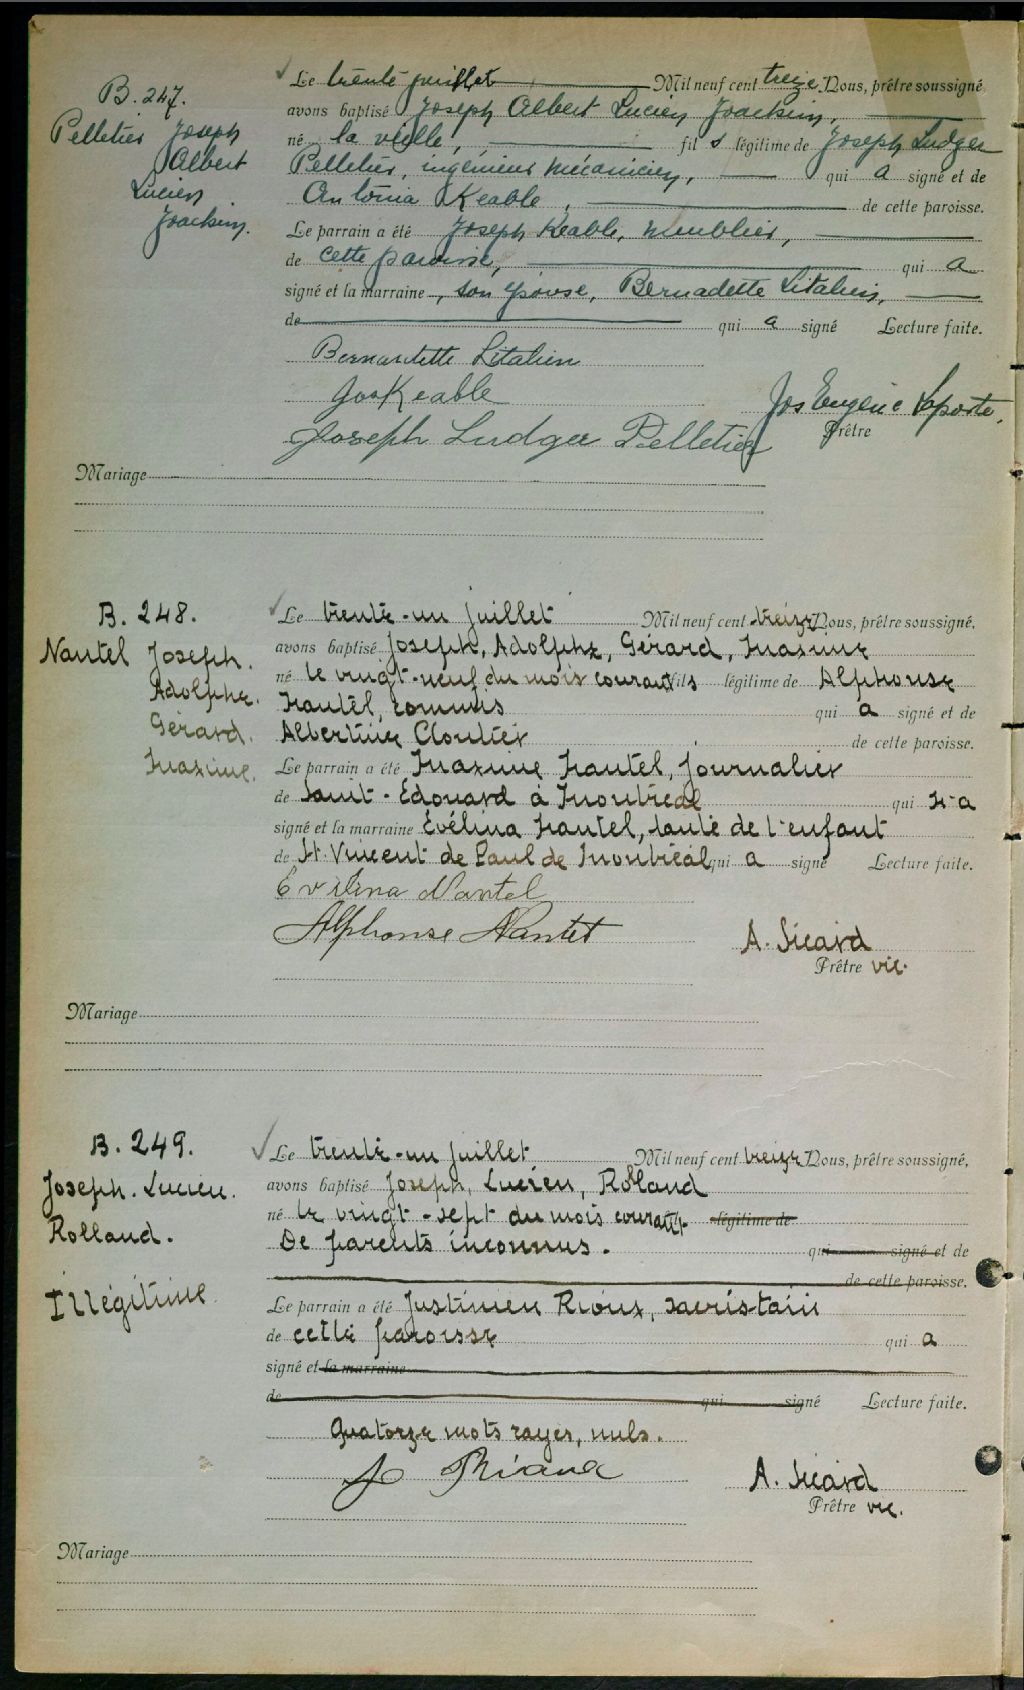 B. 247.
Pelletier Joseph
Albert
Lucien
Joachim.
Le trente juillet Mil neuf cent treize Nous, prêtre soussigné
avons baptisé Joseph Albert Lucien Joachim,
né la veille, fils légitime de Joseph Ludger
Pelletier, ingénieur mécanicien, qui a signé et de
Antonia Keable, de cette paroisse.
Le parrain a été Joseph Keable, meublier,
de cette paroisse, qui a
signé et la marraine, son épouse, Bernadette Litalien,
de qui a signé Lecture faite.
Bernadette Litalien
Jos Keable
Joseph Ludger Pelletier
Jos Eugène Laporte,
Prêtre
Mariage
B. 248.
Nantel Joseph.
Adolphe.
Gérard.
Maxime.
Le trente-un juillet Mil neuf cent treize Nous, prêtre soussigné,
avons baptisé Joseph, Adolphe, Gérard, Maxime
né le vingt-neuf du mois courant fils légitime de Alphonse
Nantel, commis qui a signé et de
Albertine Cloutier de cette paroisse.
Le parrain a été Maxime Nantel, journalier
de Saint-Édouard à Montréal qui n'a
signé et la marraine Évélina Nantel, tante de l'enfant
de St Vincent de Paul de Montréal qui a signé Lecture faite.
Evelina Nantel
Alphonse Nantel
A. Sicard
Prêtre vic.
Mariage
B. 249.
Joseph. Lucien.
Rolland.
Illégitime
Le trente-un juillet Mil neuf cent treize Nous, prêtre soussigné,
avons baptisé Joseph, Lucien, Rolland
né le vingt-sept du mois courant légitime de
De parents inconnus. qui signé et de
de cette paroisse.
Le parrain a été Justinien Rioux, sacristain
de cette paroisse qui a
signé et la marraine
de qui signé Lecture faite.
Quatorze mots rayés, nuls.
J
A. Sicard
Prêtre vic.
Mariage